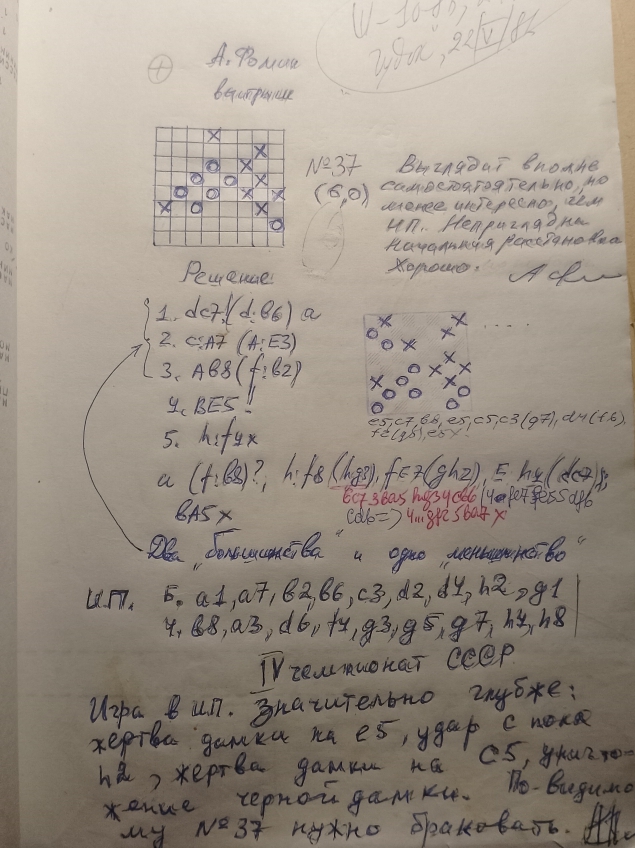 Ш-10
Гудок, 22/V/82
А. Фомин
выигрыш
№37
(6,0)
Выглядит вполне
самостоятельно, но
менее интересно, чем
ИП. Неприглядна
начальная расстановка
Хорошо.
Решение:
1. dc7! (d:b6) a
2. c:A7 (A:E3)
3. AB8 (f:b2)
4. BE5!!
5. h:f4x
e5, c7, b8, e5, c5, c3 (g7), d4 (f6),
a (f:b8)?, h:f8 (hg3), fE7 (gh2), E:h4 (dc7),
bc7 3ba5 hg3 4cb6
cd6=>
bA5x
Два "большинства" и одно "меньшинство"
И.П. Б. a1, a7, b2, b6, c3, d2, d4, h2, g1
Ч. b8, a3, d6, f4, g3, g5, g7, h4, h8
IV чемпионат СССР
Игра в ИП. значительно глубже:
жертва дамки на e5, удар с поля
h2, жертва дамки на c5, уничто-
жение черной дамки. По-видимо
му №37 нужно браковать.